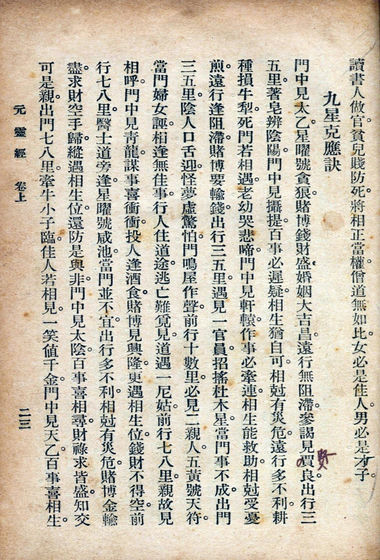 讀書人做官。貧兒賤防死。將相正當權。僧道無如比。女必是佳人。男必是才子。
九星克應訣
門中見太乙。星曜號貪狼。賭博錢財盛。婚姻大吉昌。遠行無阻滯。參謁見買良。出行三
賢
五里。著皂辨陰陽。門中見攝提。百事必遲疑。相生猶自可。相尅有災危。遠行多不利。耕
種損牛犂。死門若相遇。老幼哭悲啼。門中見軒轅。作事必牽連。相生能救助。相尅受憂
煎。遠行逢阻滯。賭博要輸錢。出行三五里。遇見一官員。招搖杜木星。當門事不成。出門
三五里。陰人口舌迎。怪夢虛驚怕。門鳴屋作聲。前行十數里。必見二親人。五黃號天符。
當門婦女謀。相逢無佳事。行人住道途。逃亡難覓見。道遇一尼姑。前行七八里。親故見
相呼。門中見青龍。謀事喜衝衝。投人逢酒食。賭博見興隆。更遇相生位。錢財不得空。前
行七八里。醫士道旁逢。星曜號咸池。當門並不宜。出行多不利。相尅有災危。賭博金輸
盡。求財空手歸。縱遇相生位。還防是與非。門中見太陰。百事喜相尋。財祿求皆盛。知交
可是親。出門七八里。牽牛小子臨。佳人若相見。一笑値千金。門中見天乙。百事喜相生。
元靈經 卷上 二三